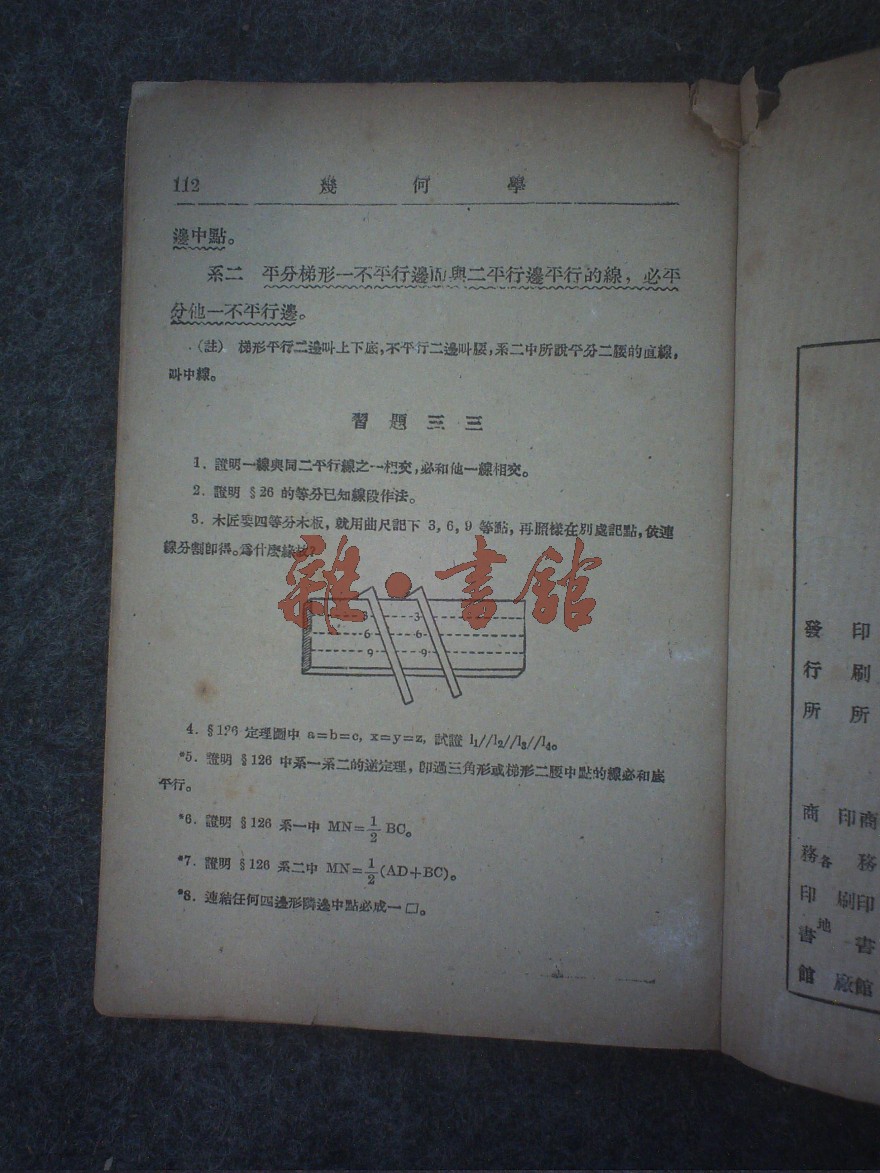 112 幾何學
邊中點。
系二 平分梯形一不平行邊而與二平行邊平行的線，必平
分他一不平行邊。
（註） 梯形平行二邊叫上下底，不平行二邊叫腰，系二中所說平分二腰的直線，
叫中線。
習題三三
1. 證明一線與同二平行線之一相交，必和他一線相交。
2. 證明 §26 的等分已知線段作法。
3. 木匠要四等分木板，就用曲尺記下 3, 6, 9 等點，再照樣在別處記點，依連
線分割即得。爲什麼緣故？
雜·書館
3 3
6 6
9 9
4. §126 定理圖中 a=b=c, x=y=z, 試證 l₁//l₂//l₃//l₄。
*5. 證明 §126 中系一系二的逆定理，卽過三角形或梯形二腰中點的線必和底
平行。
*6. 證明 §126 系一中 MN=1/2 BC。
*7. 證明 §126 系二中 MN=1/2(AD+BC)。
*8. 連結任何四邊形隣邊中點必成一□。
印刷所
發行所
商務印書館
印刷廠
各地
商務印書館